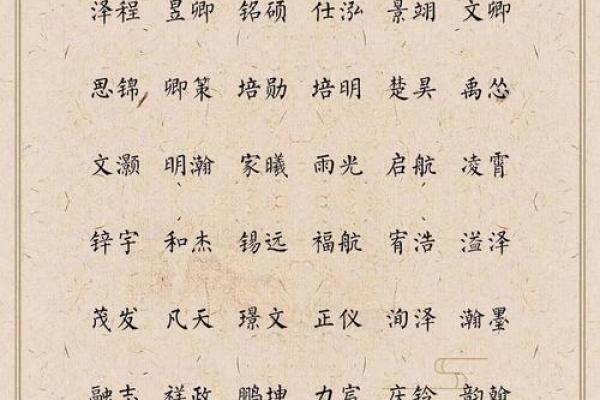 泽程 昱卿 铭硕 仕泓 景翊 文卿
思锦 卿策 培勋 培明 楚昊 禹怂
文灏 明瀚 家曦 雨光 启航 凌霄
锌宇 和杰 锡远 福航 宥浩 溢泽
茂发 凡天 璟文 正仪 洵泽 瀚墨
融志 祥政 鹏坤 力宾 庆铃 韵翰